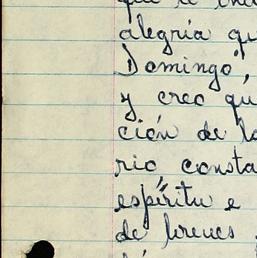 alegría qu
Domingo",
y creo qu
ción de la
rio consta
espíritu e
de breves